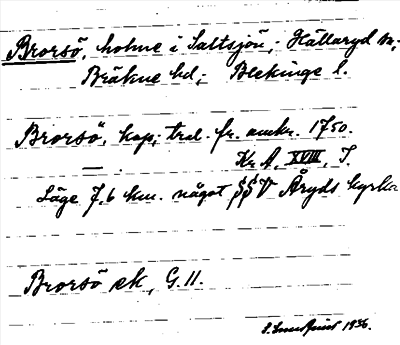 Brorsö, holme i Saltsjön; Hällaryd sn;
Bräkne hd; Blekinge l.
Brorsö, kop; trol. fr. omkr. 1750.
— . Kr A. XVIII, I.
Läge 7,6 km. något SSV Åryds kyrka
Brorsö ek, G.11.
S. Sundquist 1936.